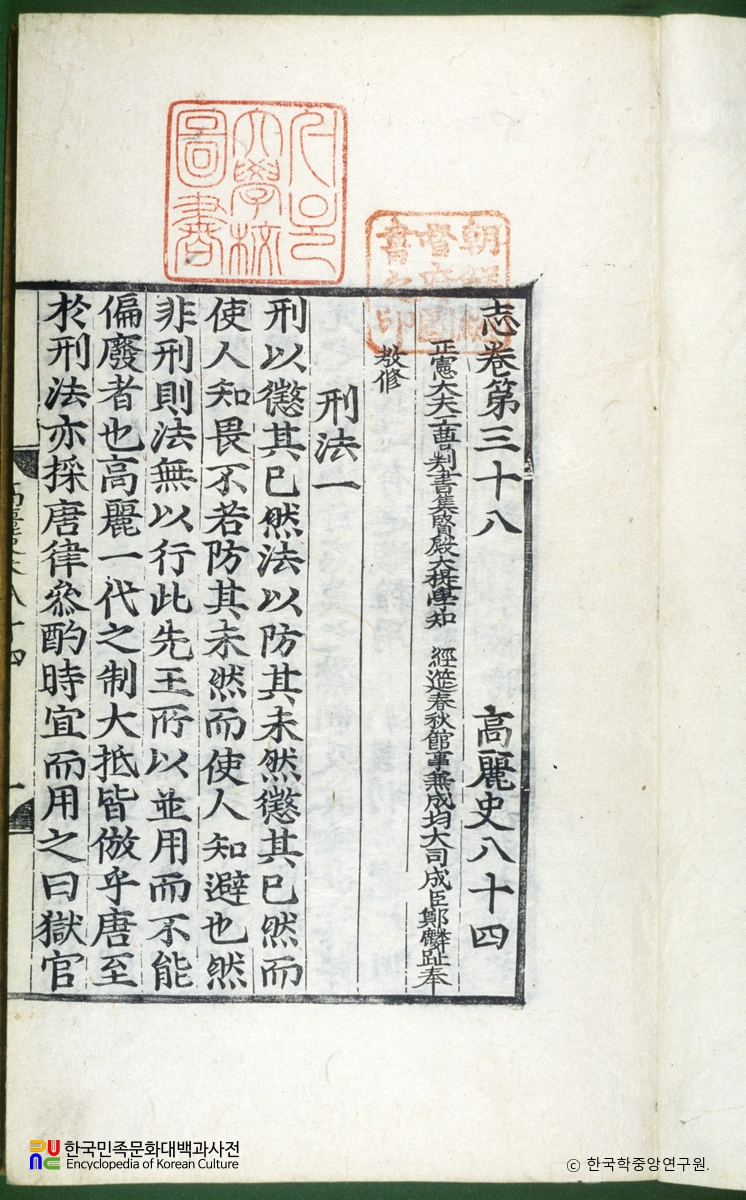 志卷第三十八 高麗史八十四
正憲大夫工曹判書集賢殿大提學知 經筵春秋館事兼成均大司成臣鄭麟趾奉
敎修
刑法一
刑以懲其已然法以防其未然懲其已然而
使人知畏不若防其未然而使人知避也然
非刑則法無以行此先王所以並用而不能
偏廢者也高麗一代之制大抵皆倣乎唐至
於刑法亦採唐律叅酌時宜而用之曰獄官
大學校
圖書
朝鮮總
督府圖
書之印
한국민족문화대백과사전
Encyclopedia of Korean Culture
© 한국학중앙연구원.